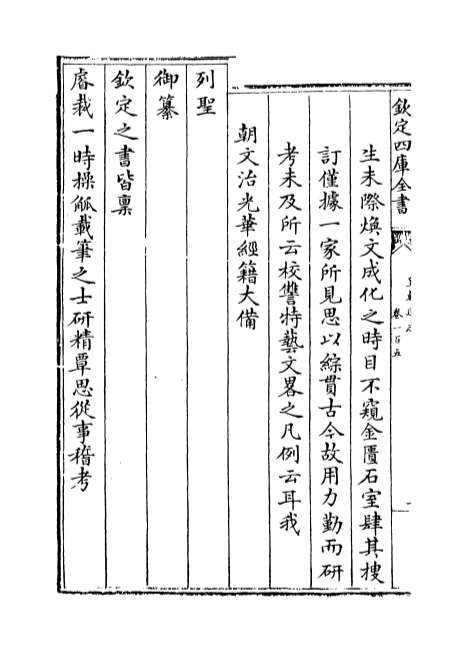 欽定四庫全書
卷一百五
生未際煥文成化之時目不窺金匱石室肆其搜
訂僅據一家所見思以綜貫古今故用力勤而研
考未及所云校讐特藝文畧之凡例云耳我
朝文治光華經籍大備
列聖
御纂
欽定之書皆稟
睿裁一時操觚載筆之士研精覃思從事稽考